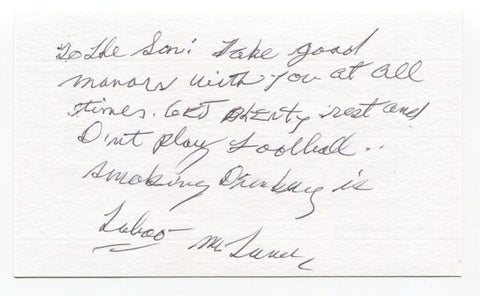 To the Son: Take good
manors with you at all
times. GET PLENTY rest and
D'nt play Football..
smoking Drinking is
Taboo